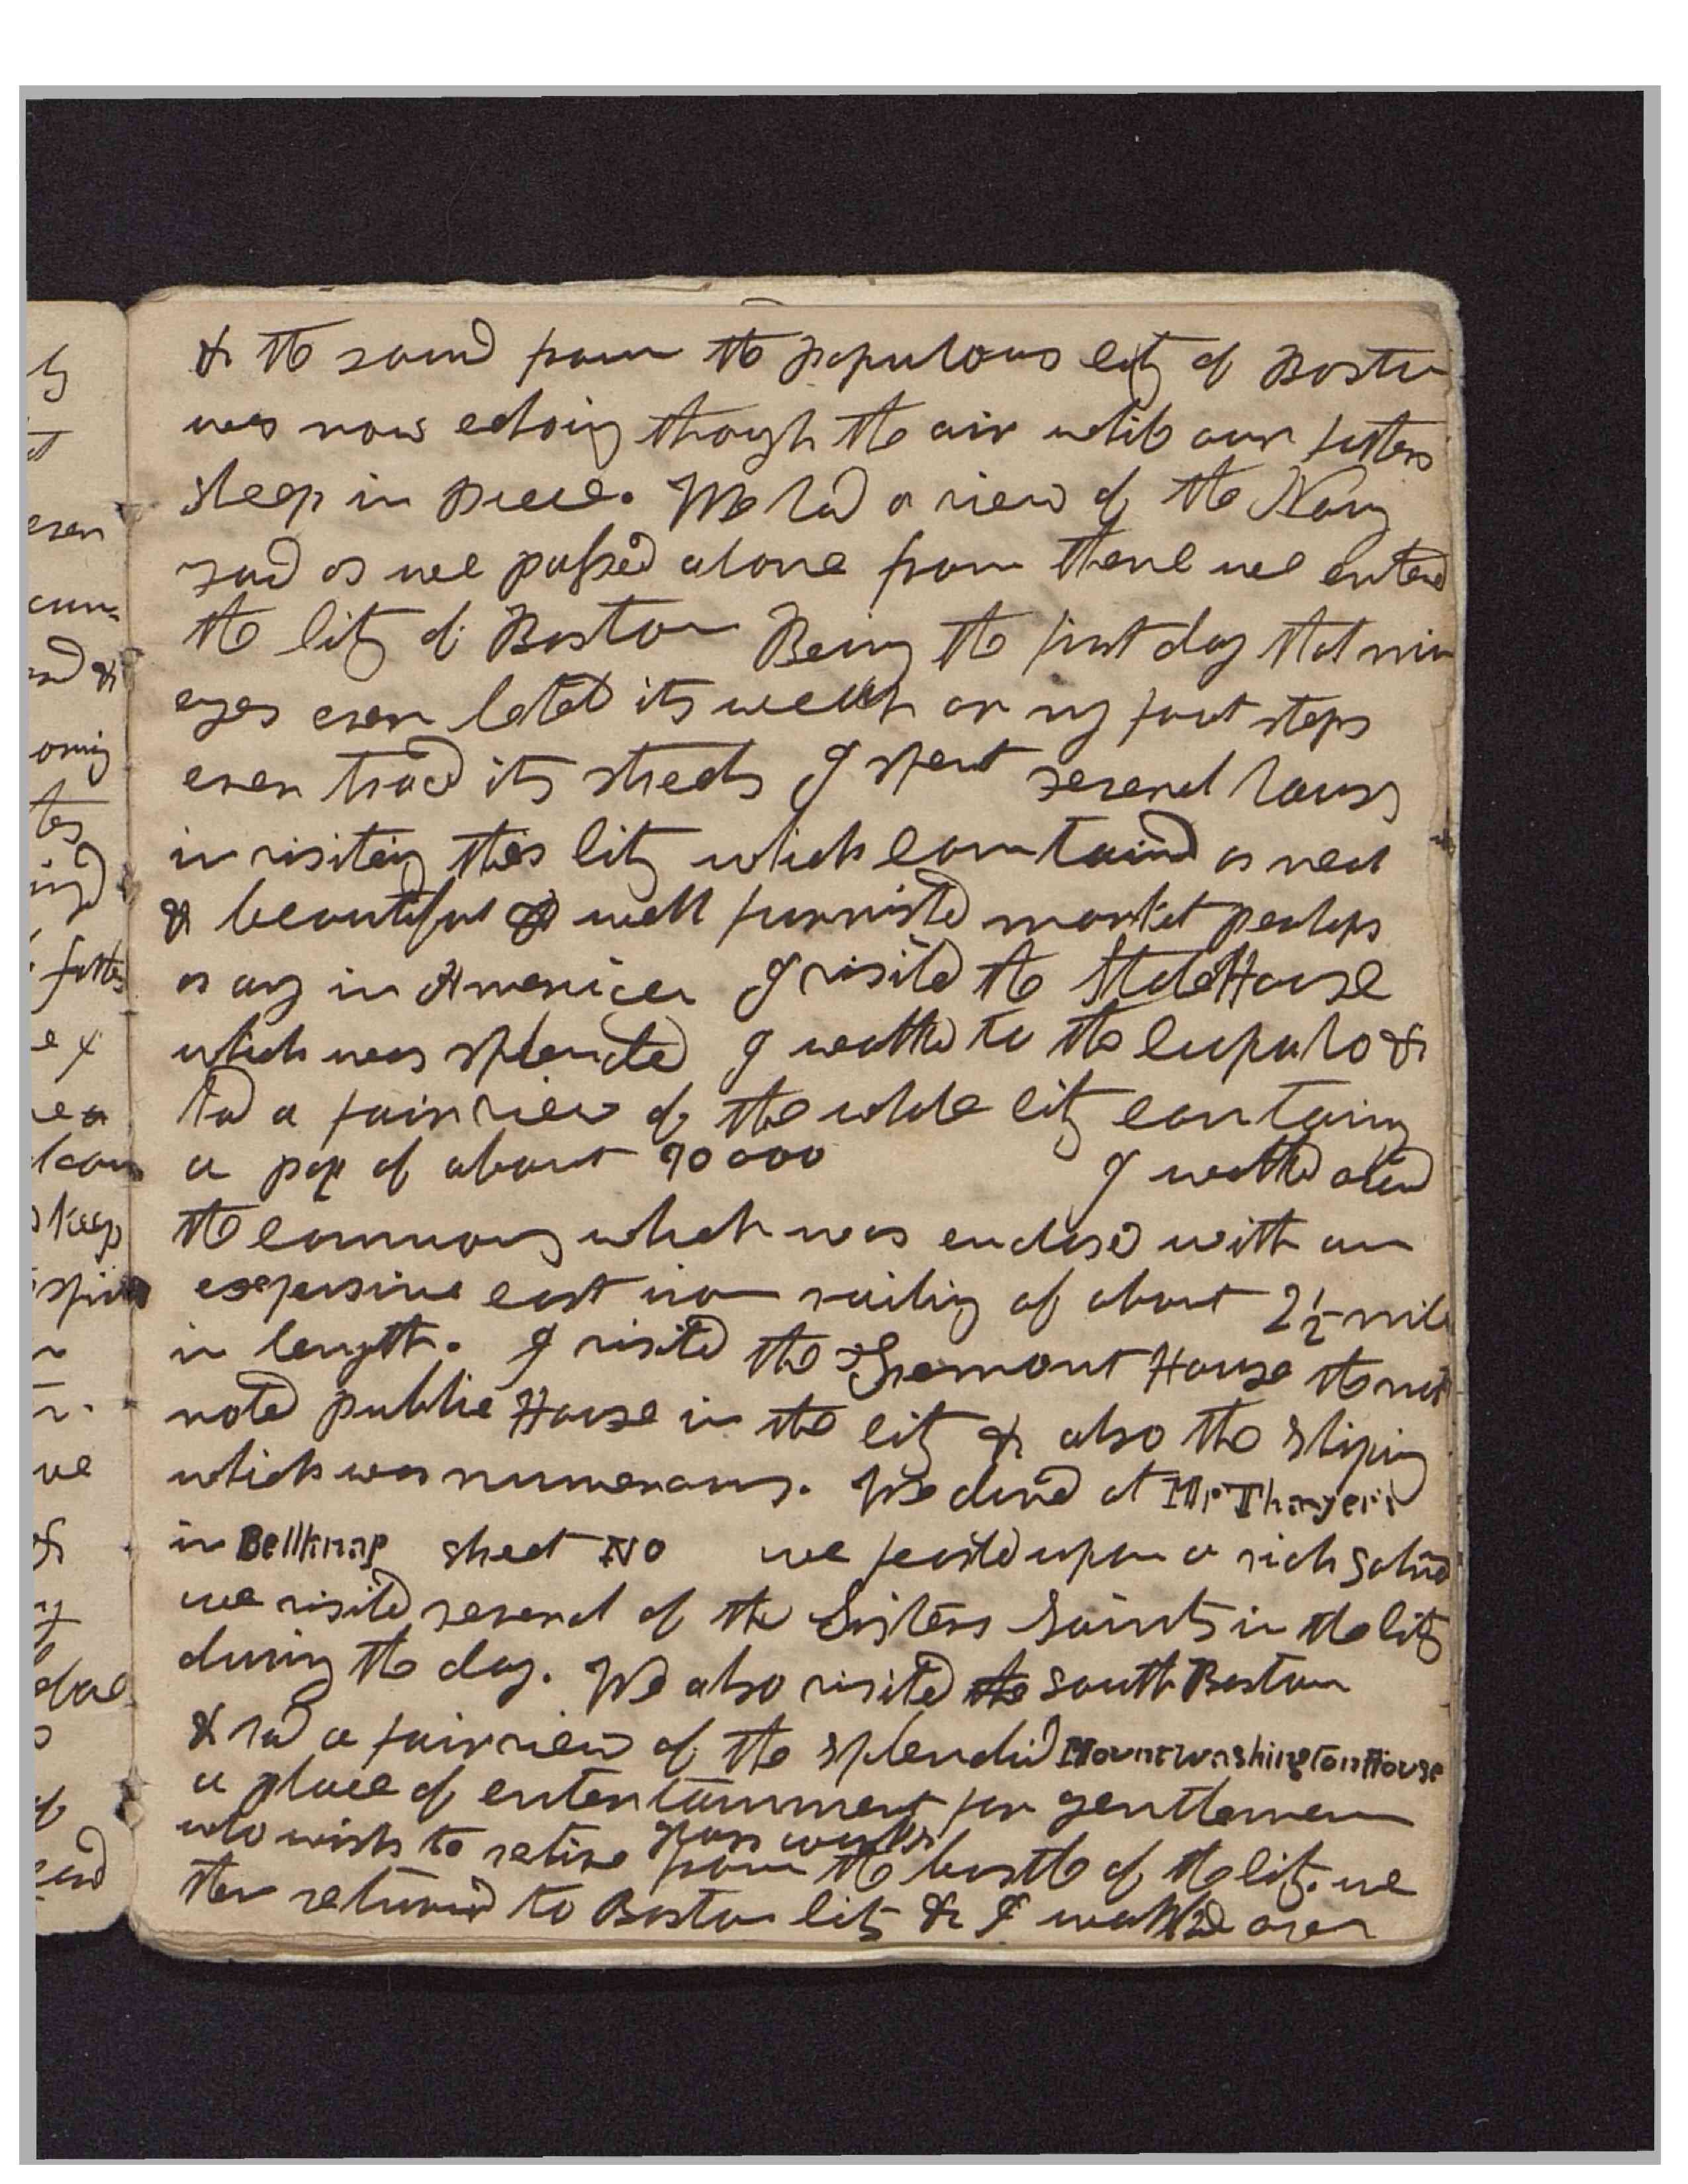 & the sound from the populous city of Boston
was now echoing though the air while our fathers
sleep in peece. We had a view of the Navy
yard as we passed alone from thence we entered
the City of Boston Being the first day that mine
eyes ever beheld its wealth or my foot steps
ever traced its streets I spent several hours
in visiting this City which contained as neat
& beautiful & well furnished market perhaps
as any in America I visited the State House
which was splended I walked to the cupalo &
had a fair view of the whole city containing
a pop of about 90000 I walked around
the commons which was enclosed with an
expensive cast iron railing of about 2½ mile
in length. I visited the Tremont House the most
noted public House in the city & also the shiping
which was numerous. We dined at Mr Thayer's
in Bellknap street No we feasted upon a rich
we visited several of the Sisters Saints in the City
during the day. We also visited the South Boston
& had a fair view of the splendid Mount Washington House
a place of entertainment for gentlemen
glass works
who wish to retire from the bustle of the city. we
then returned to Boston City & I walked over